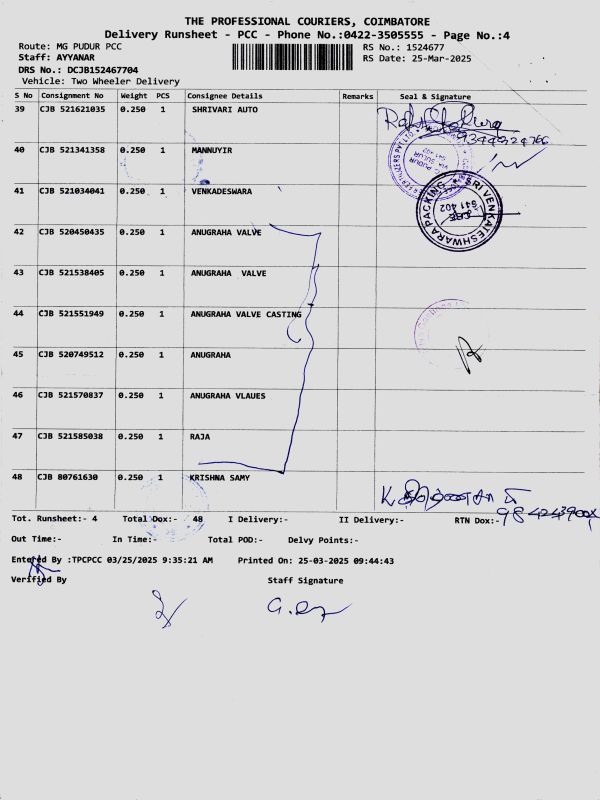 THE PROFESSIONAL COURIERS, COIMBATORE
Delivery Runsheet - PCC - Phone No.:0422-3505555 - Page No.:4
Route: MG PUDUR PCC RS No.: 1524677
Staff: AYYANAR RS Date: 25-Mar-2025
DRS No.: DCJB152467704
Vehicle: Two Wheeler Delivery
S No Consignment No Weight PCS Consignee Details Remarks Seal & Signature
39 CJB 521621035 0.250 1 SHRIVARI AUTO
40 CJB 521341358 0.250 1 MANNUYIR
41 CJB 521034041 0.250 1 VENKADESWARA
SRI VENKATESHWARA PACKING
641 402
42 CJB 520450435 0.250 1 ANUGRAHA VALVE
43 CJB 521538405 0.250 1 ANUGRAHA VALVE
44 CJB 521551949 0.250 1 ANUGRAHA VALVE CASTING
45 CJB 520749512 0.250 1 ANUGRAHA
46 CJB 521570837 0.250 1 ANUGRAHA VLAUES
47 CJB 521585038 0.250 1 RAJA
48 CJB 80761630 0.250 1 KRISHNA SAMY
Tot. Runsheet:- 4 Total Dox:- 48 I Delivery:- II Delivery:- RTN Dox:-
Out Time:- In Time:- Total POD:- Delvy Points:-
Entered By :TPCPCC 03/25/2025 9:35:21 AM Printed On: 25-03-2025 09:44:43
Verified By Staff Signature